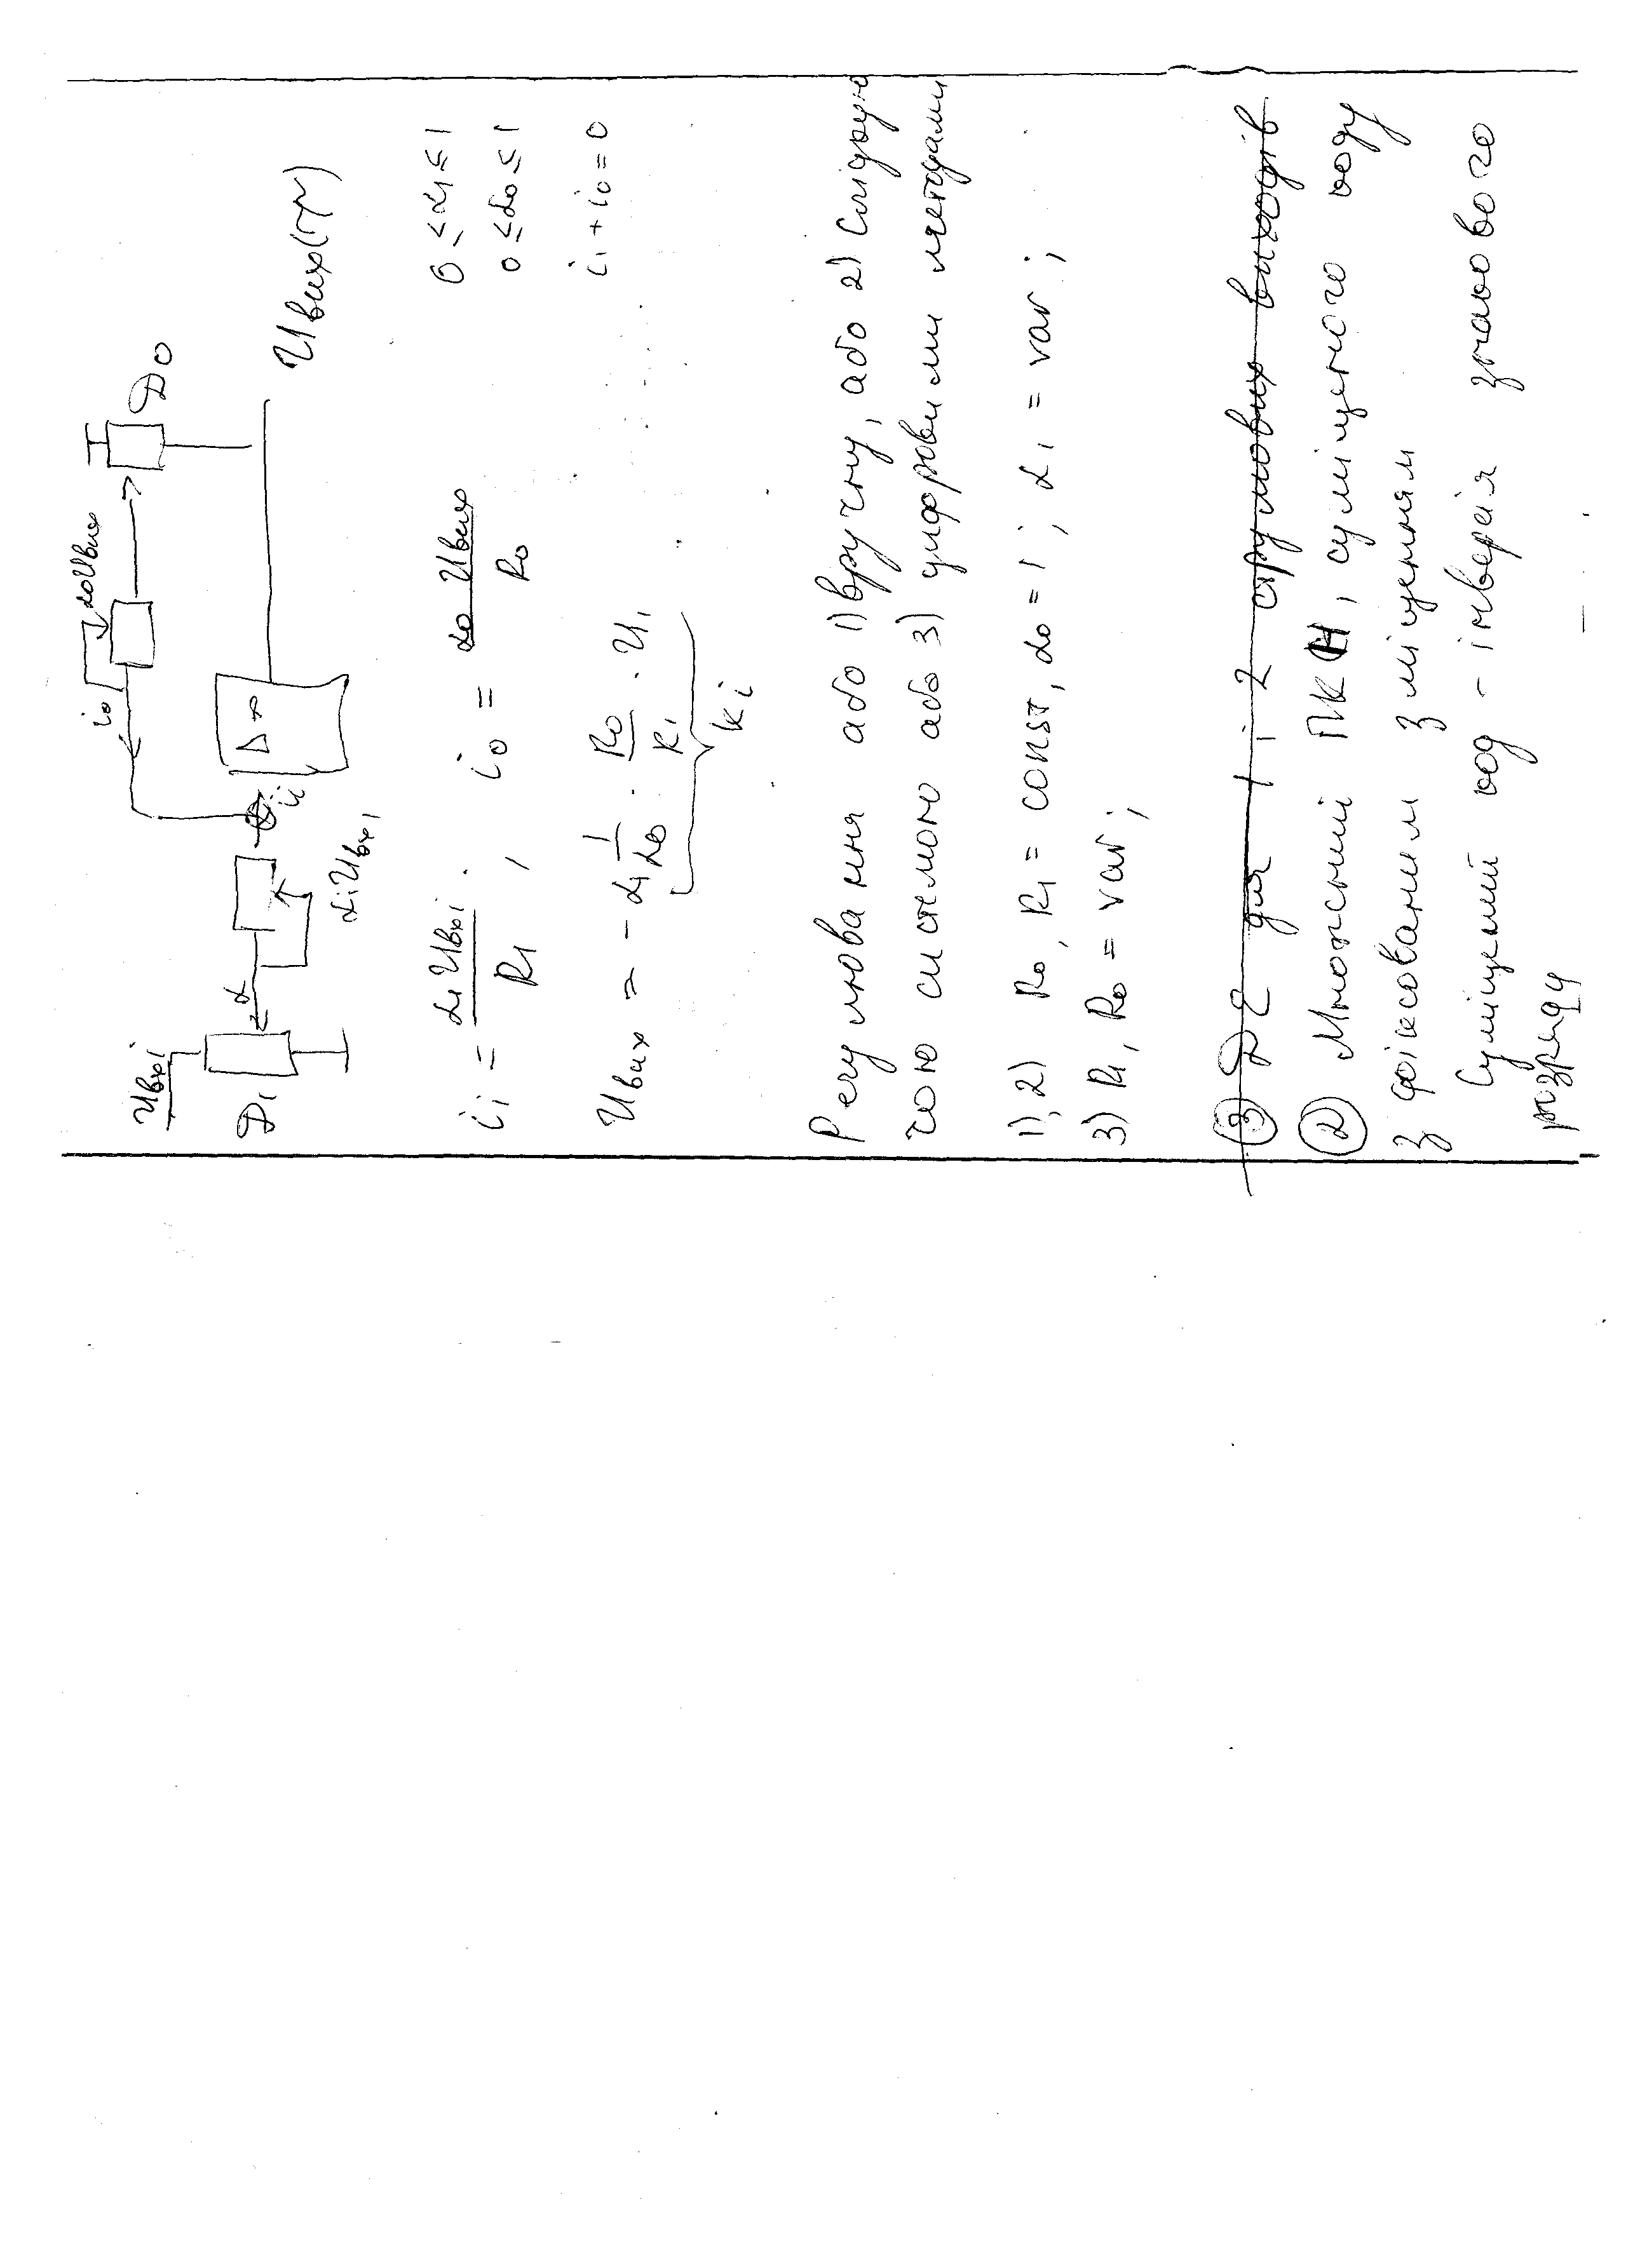 Uвхi
Д1
α
αiUвх1
i0
α0Uвих
Д0
ii
Uвих(τ)
i1 = α1Uвхi / R1 , i0 = α0 Uвих / R0
0 ≤ α1 ≤ 1
0 ≤ α0 ≤ 1
Uвих = - α1 1/α0 · R0/R1 · U1
i1 + i0 = 0
ki
Регулювання або 1) вручну, або 2) слідкую
чою системою або 3) цифровими методами
1), 2) R0, R1 = const, α0 = 1 ; α1 = var ;
3) R1, R0 = var ;
③ для 1 і 2 струмових виходів
② Множений ПК Н, суміщеного коду
з фіксованим зміщенням
Суміщений код - інверсія знакового
розряду